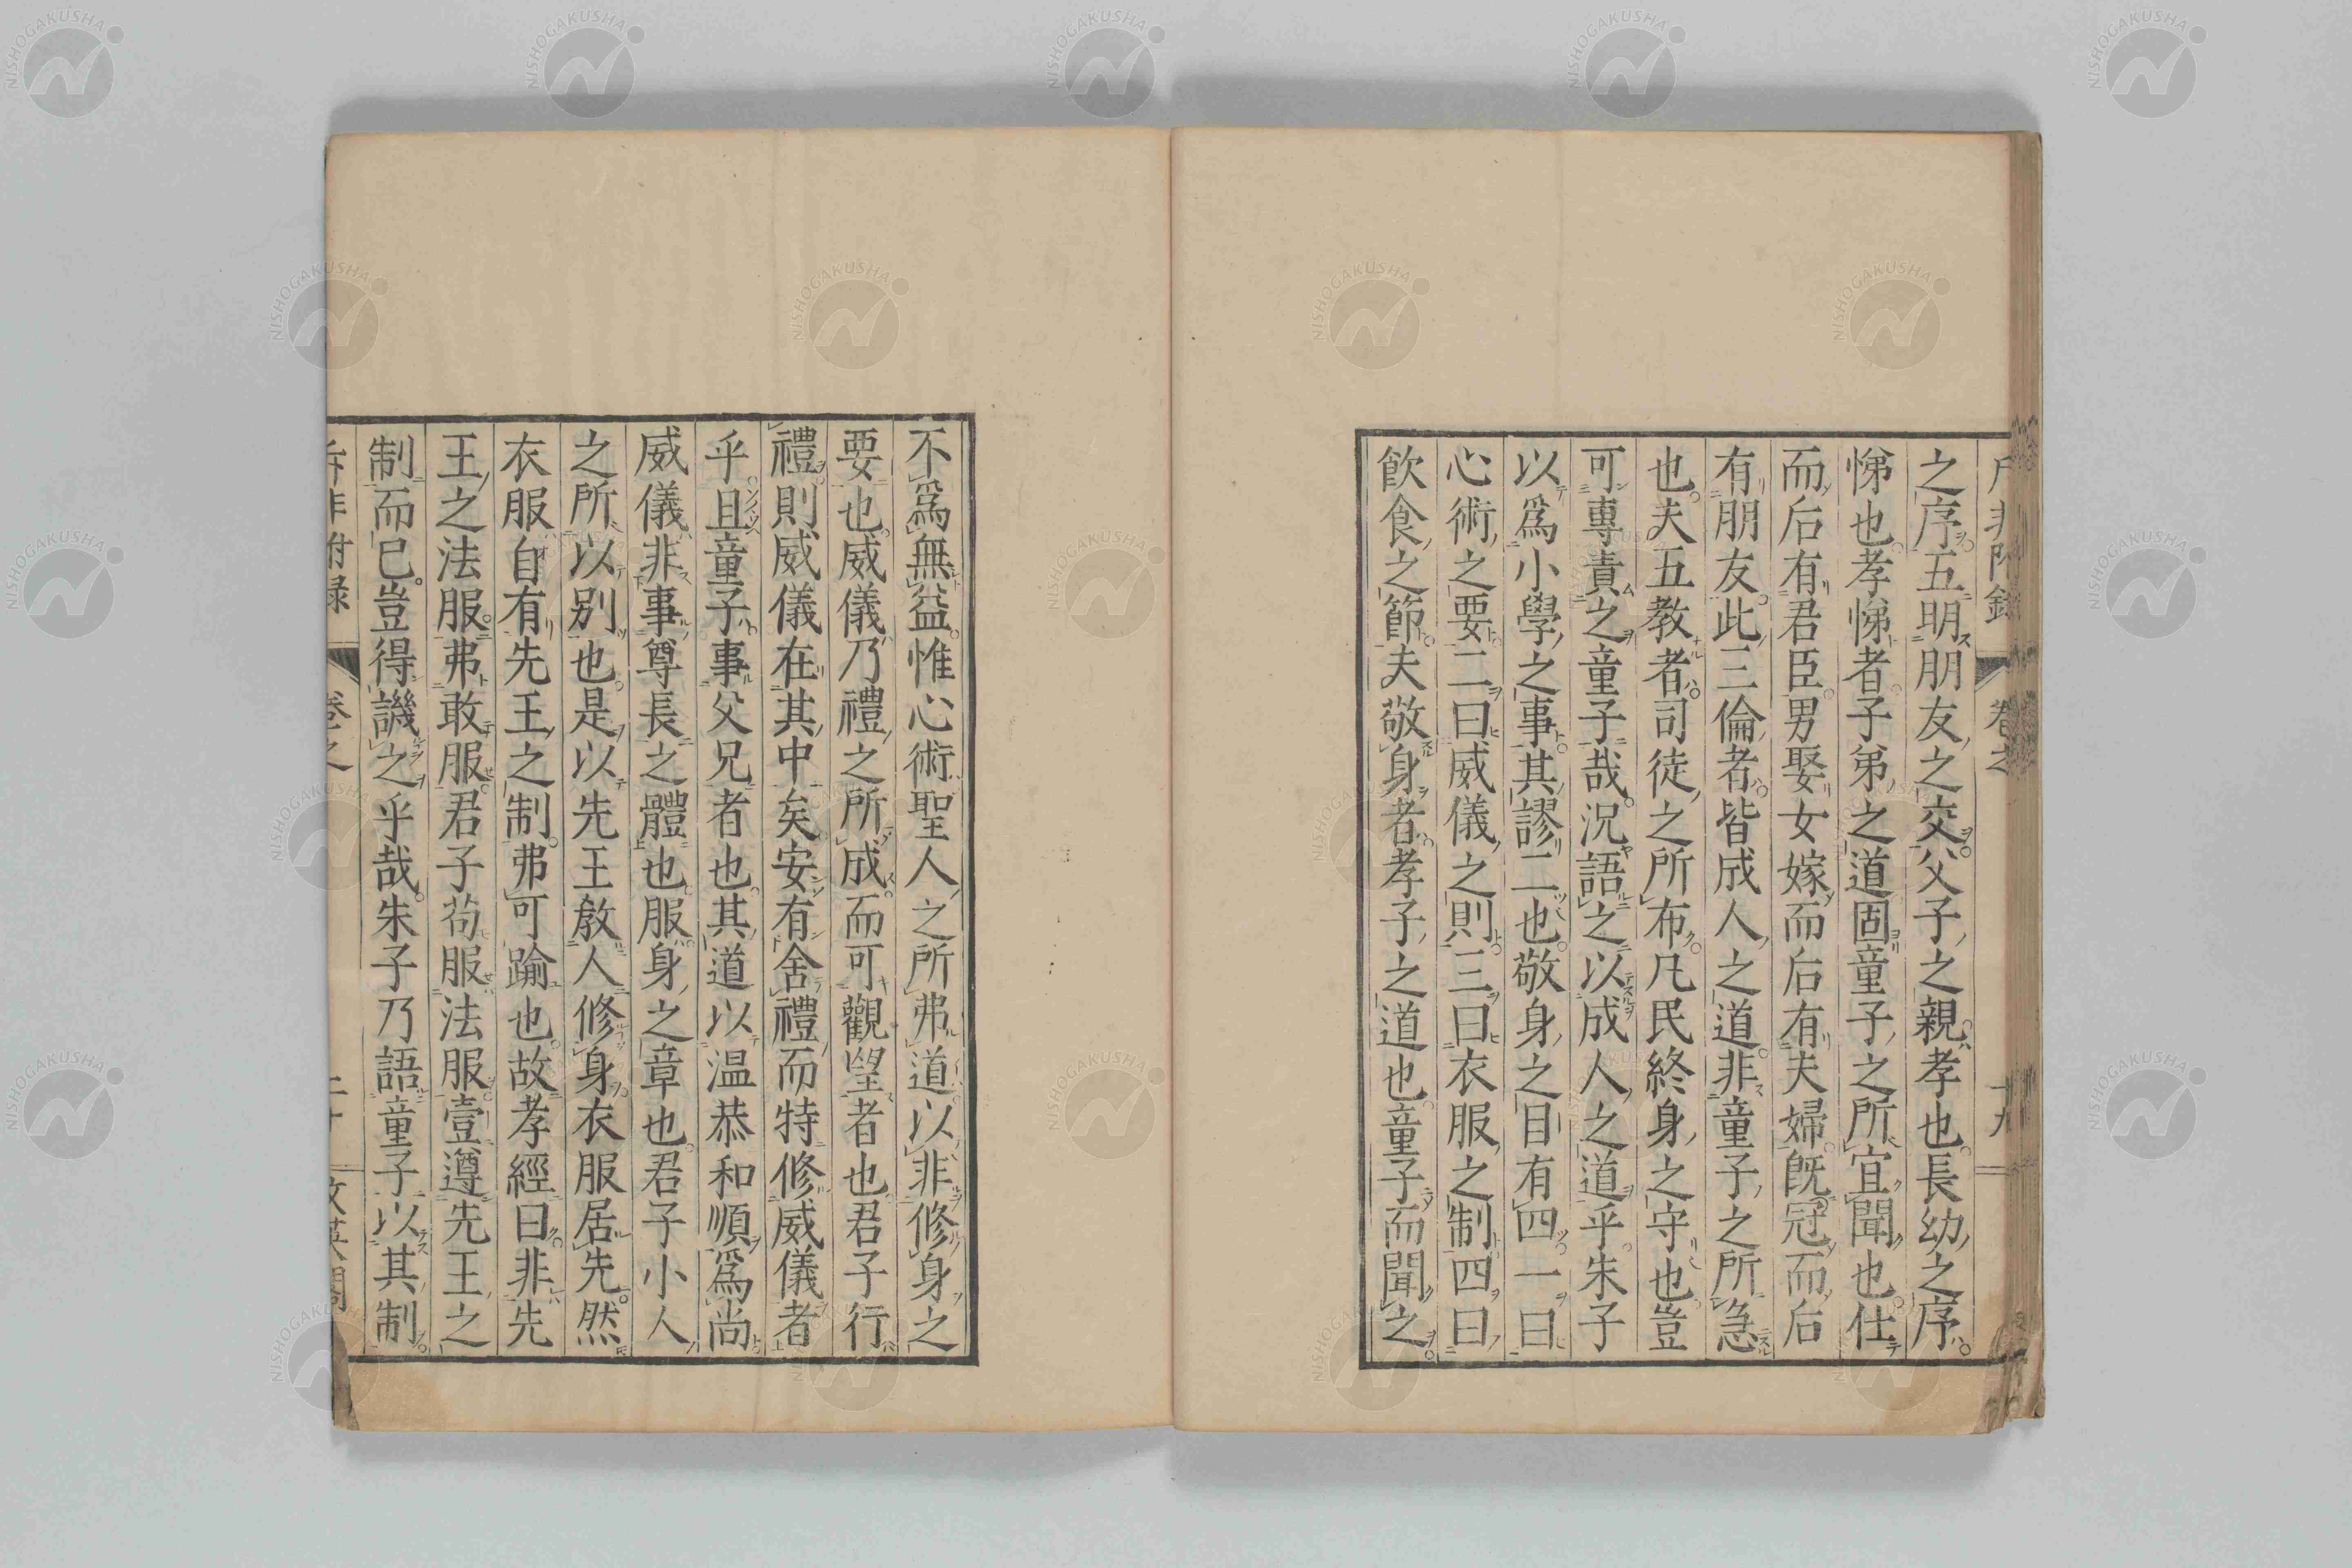 之序五明朋友之交父子之親孝也長幼之序
悌也孝悌者子弟之道固童子之所宜聞也仕
而后有君臣男娶女嫁而后有夫婦既冠而后
有朋友此三倫者皆成人之道非童子之所急
也夫五教者司徒之所布凡民終身之守也豈
可專責之童子哉況語之以成人之道乎朱子
以爲小學之事其謬二也敬身之目有四一曰
心術之要二曰威儀之則三曰衣服之制四曰
飲食之節夫敬身者孝子之道也童子而聞之
不爲無益惟心術聖人之所弗道以非修身之
要也威儀乃禮之所成而可觀望者也君子行
禮則威儀在其中矣安有舍禮而特修威儀者
乎且童子事父兄者也其道以温恭和順爲尚
威儀非事尊長之體也服身之章也君子小人
之所以別也是以先王教人修身衣服居先然
衣服自有先王之制弗可踰也故孝經曰非先
王之法服弗敢服君子苟服法服壹遵先王之
制而已豈得譏之乎哉朱子乃語童子以其制
附録
卷之
NISHOGAKUSHA